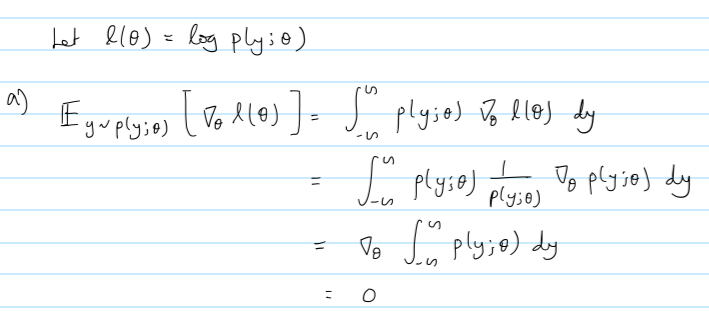 Let l(θ) = log p(y;θ)
a) 𝔼_{y~p(y;θ)} [∇_θ l(θ)] = ∫_{-∞}^{∞} p(y;θ) ∇_θ l(θ) dy
= ∫_{-∞}^{∞} p(y;θ) 1/p(y;θ) ∇_θ p(y;θ) dy
= ∇_θ ∫_{-∞}^{∞} p(y;θ) dy
= 0